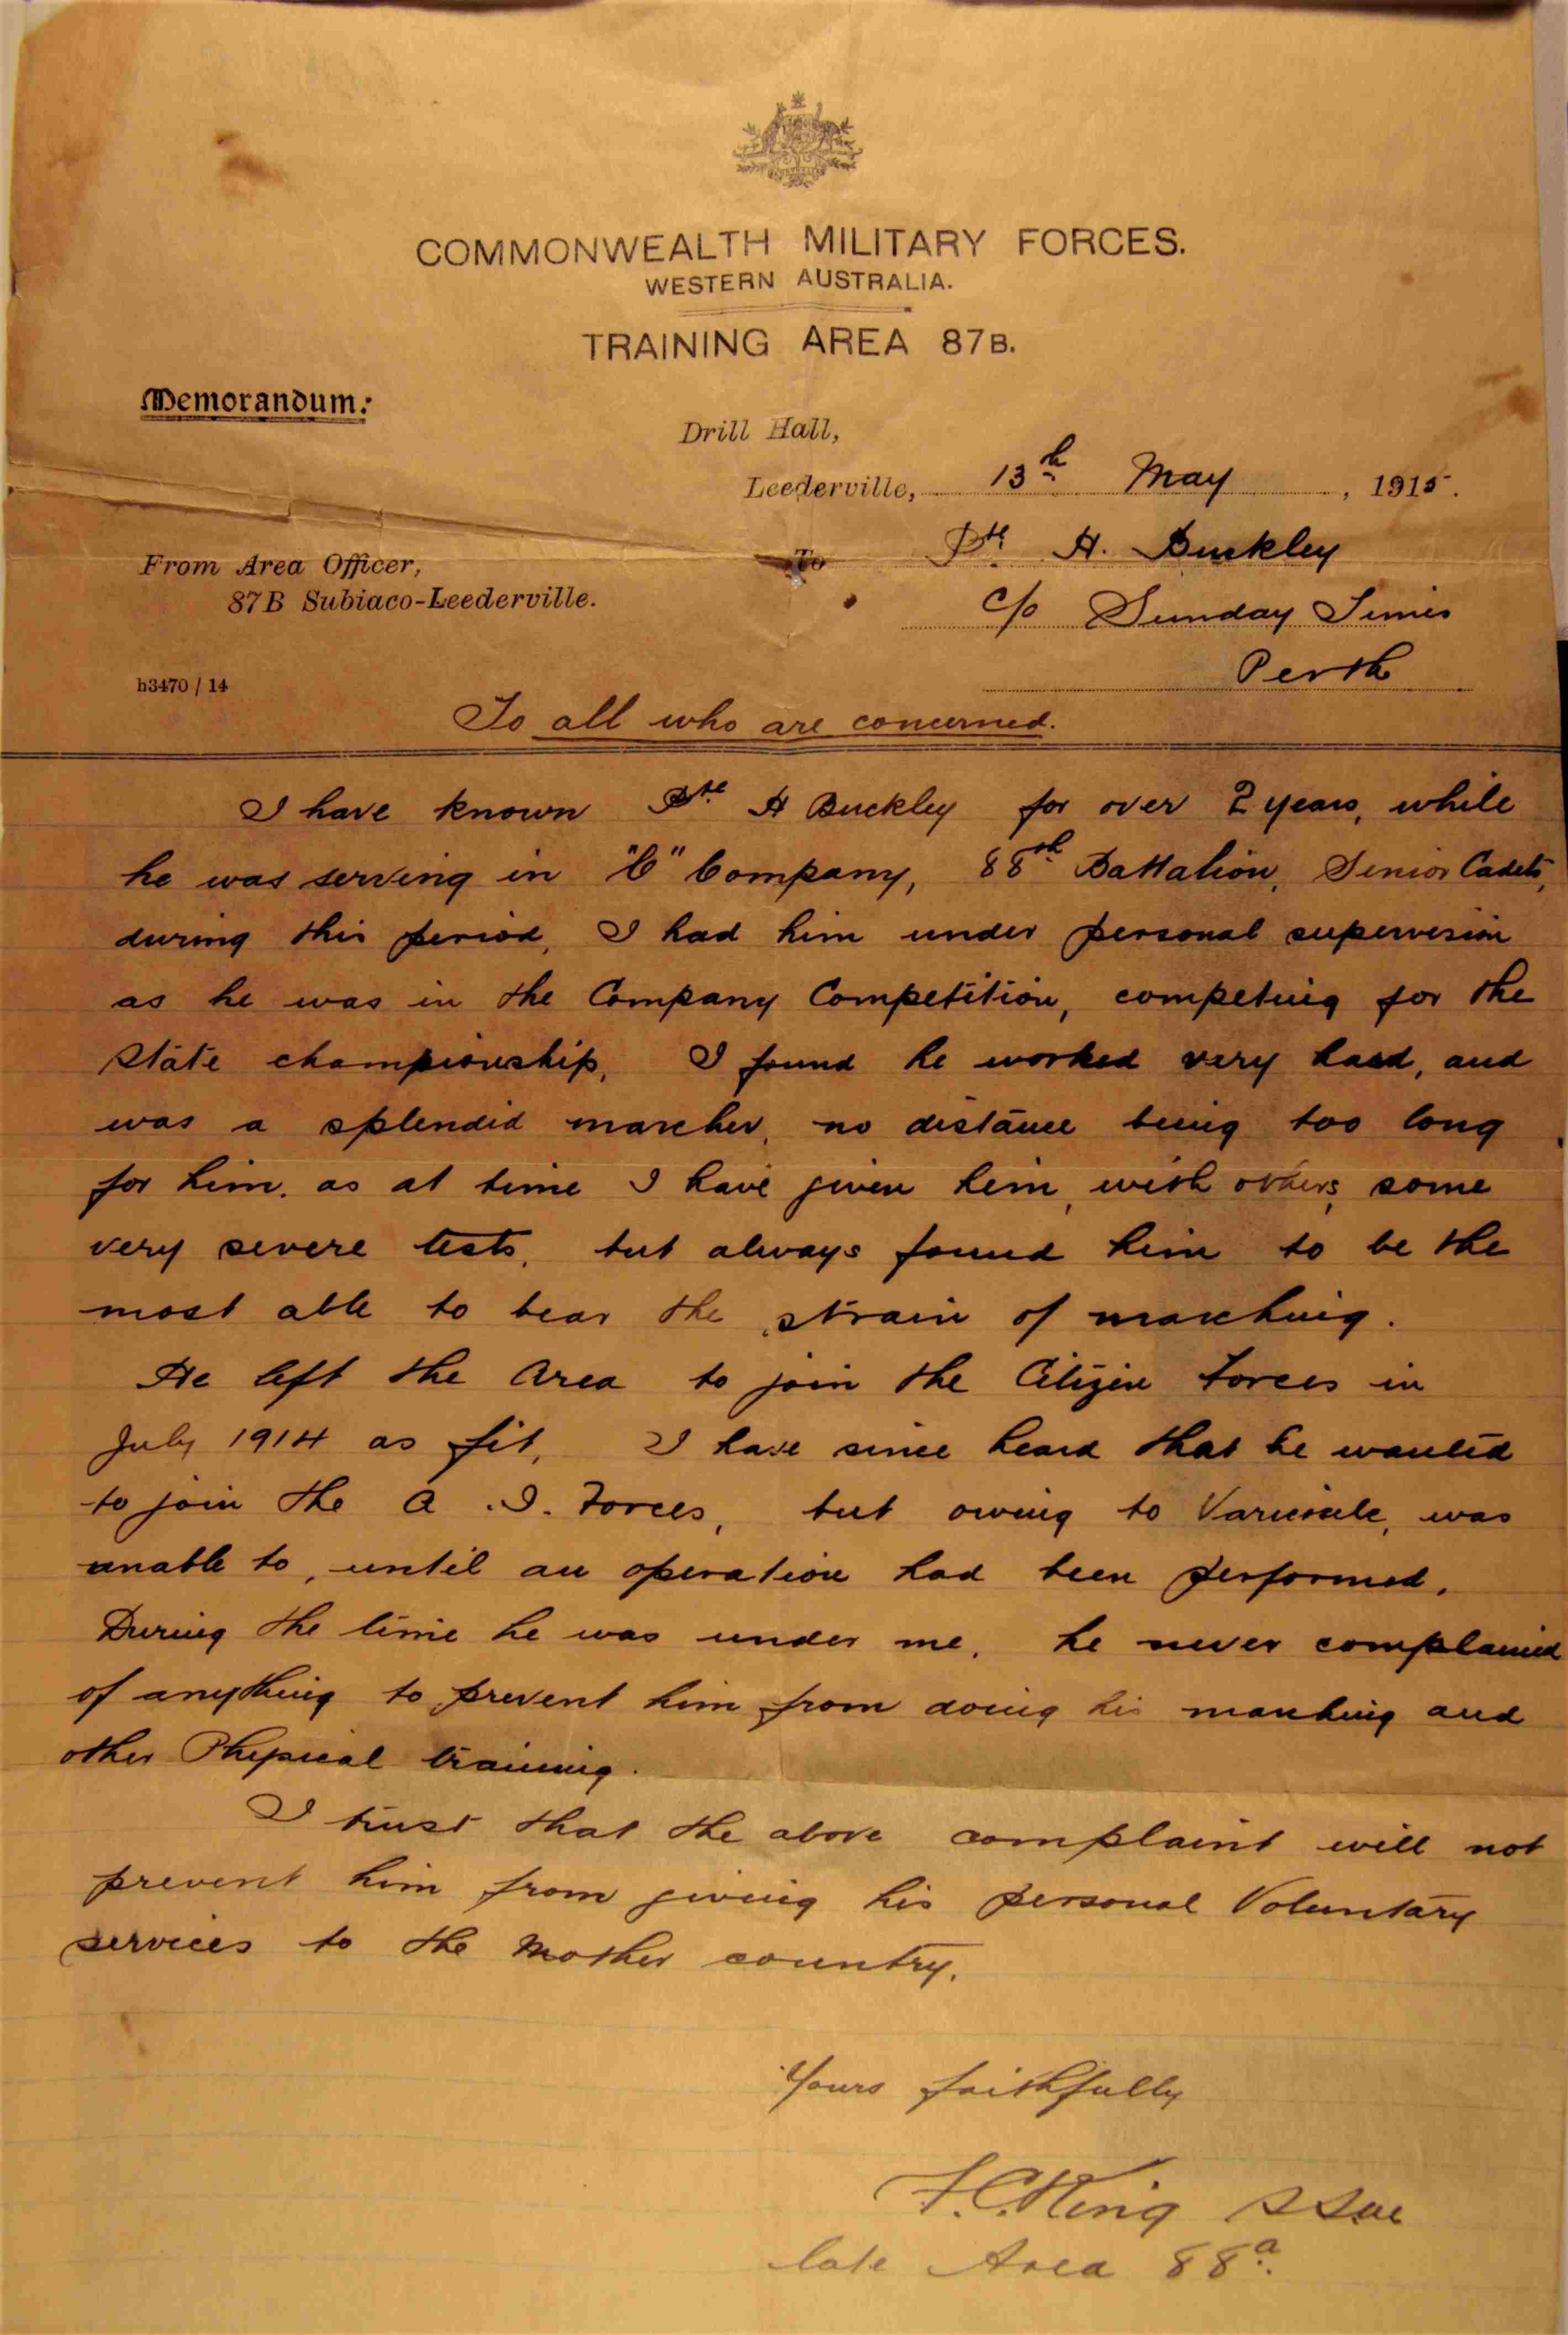 COMMONWEALTH MILITARY FORCES.
WESTERN AUSTRALIA.
TRAINING AREA 87B.
Memorandum:
Drill Hall,
Leederville, 13th May, 1915.
From Area Officer,
87B Subiaco-Leederville.
To Pte H. Buckley
c/o Sunday Times
Perth
h3470 / 14
To all who are concerned.
I have known Pte H Buckley for over 2 years, while
he was serving in "C" Company, 88th Battalion, Senior Cadets,
during this period, I had him under personal supervision
as he was in the Company Competition, competing for the
state championship, I found he worked very hard, and
was a splendid marcher, no distance being too long
for him. as at time I have given him, with others, some
very severe tests, but always found him to be the
most able to bear the strain of marching.
He left the Area to join the Citizen Forces in
July 1914 as fit, I have since heard that he wanted
to join the A .I. Forces, but owing to Varicocele, was
unable to, until an operation had been performed.
During the time he was under me, he never complained
of anything to prevent him from doing his marching and
other Physical training.
I trust that the above complaint will not
prevent him from giving his personal Voluntary
services to the Mother country.
Yours faithfully
F.C. King
late Area 88a.